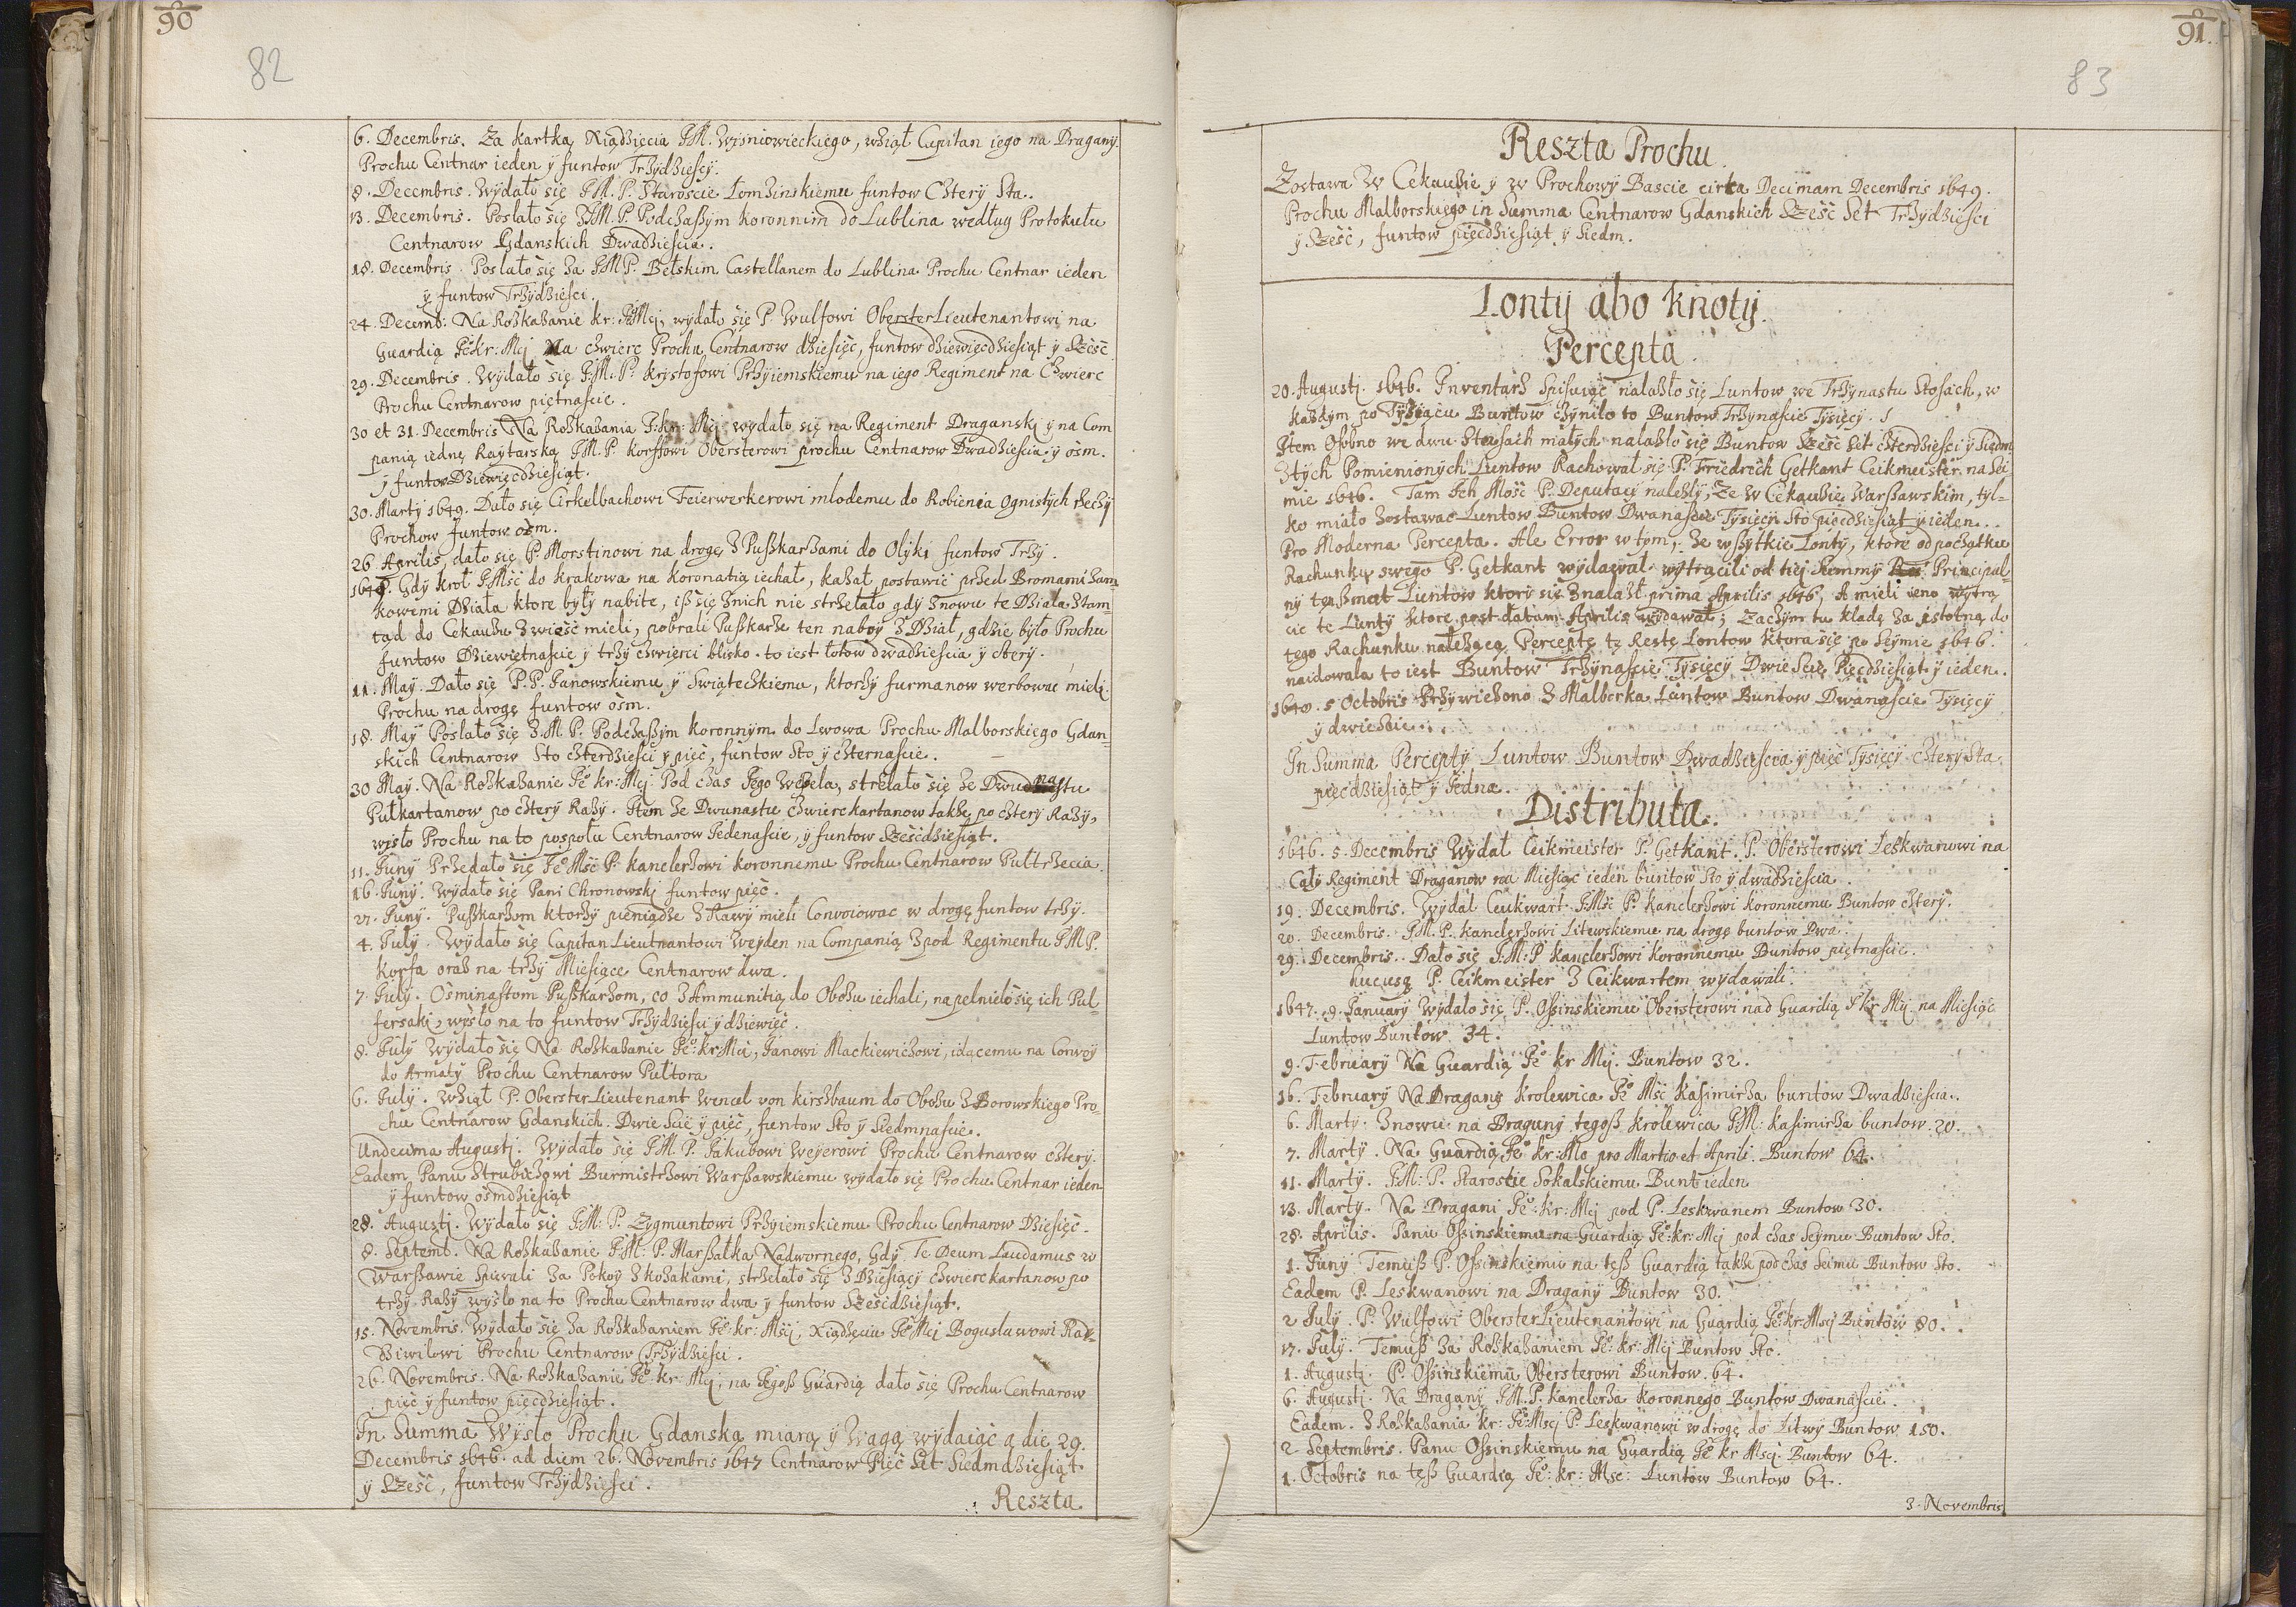 90
82
6. Decembris. Za kartką Xiądzięcia JM. Wisniowieckiego, wziął Capitan iego na Dragany.
Prochu Centnar ieden y funtow Trzydziescy.
8. Decembris. Wydało się JM. P. Staroscie Łomzinskiemu funtow Cztery Sta.
13. Decembris. Posłało się z JM. P. Podczaszym koronnim do Lublina według Protokułu
Centnarow Gdanskich Dwadziescia.
18. Decembris. Posłało się za JMP. Bełskim Castellanem do Lublina Prochu Centnar ieden
y funtow Trzydziesci.
24. Decemb: Na Roskazanie kr: JMcj, wydało się P. Wulfowi ObersterLieutenantowi na
Guardią Je° kr: Mcj Na cwierc Prochu Centnarow dziesięc, funtow dziewięcdziesiąt y Szesc
29. Decembris. Wydało się J: M: P: Krystofowi Przyiemskiemu na iego Regiment na Cwierc
Prochu Centnarow piętnascie.
30 et 31. Decembris Na Roskazania J: kr: Mcj: wydało się na Regiment Dragansky y na Com
panią iednę Raytarską JM. P. Korffowi Obersterowi prochu Centnarow Dwadziescia y osm.
y funtow Dziewięcdziesiąt.
30. Marty 1649. Dało się Cirkelbachowi Feierwerkerowi młodemu do Robienia Ognistych rzeczy
Prochow funtow osm.
26 Aprilis, dało się P. Morstinowi na drogę z Puszkarzami do Olyki funtow Trzy.
1649. Gdy krol JMsć do krakowa na koronatią iechał, kazał postawic przed Bromami zam-
kowemi Działa ktore były nabite, isz się znich nie strzelało gdy znowu te Działa ztam
tąd do Cekauzu zwiesć mieli, pobrali Puszkarze ten naboy z Dział, gdzie było Prochu
funtow Dziewiętnascie y trzy cwierci blisko. to iest łotow dwadziescia y cztery.
11. May. Dało się P. P. Janowskiemu y Swiąteckiemu, ktorzy furmanow werbowac mieli.
Prochu na drogę funtow osm.
18. May Posłało się z JM P. Podczaszym koronnym do Lwowa Prochu Malborskiego Gdan-
skich Centnarow Sto czterdziesci y pięc, funtow Sto y czternascie.
30 May. Na Roskazanie Je° kr: Mcj. Pod czas Jego Wesela, strzelało się ze Dwunastu
Pułkartanow po cztery Razy. Item ze Dwunastu cwierckartanow także po cztery Razy,
wyszło Prochu na to pospołu Centnarow Jedenascie, y funtow Szescdziesiąt.
11. Juny Przedało się Je° Msć P. kanclerzowi koronnemu Prochu Centnarow Pułtrzecia.
16. Juny. Wydało się Pani Chronowskj funtow pięć.
21. Juny. Puszkarzom ktorzy pieniądze z Rawy mieli Convoiowac w drogę funtow trzy.
4. July. Wydało się Capitan Lieutnantowi Weyden na Companią zpod Regimentu JM P.
Korfa oraz na trzy Miesiące Centnarow dwa.
7. July. Osminastom Puszkarzom, co z Ammunitią do Obozu iechali, napełnieło się ich Pul
fersaki, wyszło na to funtow Trzydziesci y dziewięć.
8. July Wydało się Na Roskazanie Je°: kr: Mci, Janowi Mackiewiczowi, idącemu na Convoy
do Armaty Prochu Centnarow Pułtora
6. July. Wziął P. ObersterLieutenant Wencel von kirszbaum do Obozu z Borowskiego Pro-
chu Centnarow Gdanskich. Dwie Scie y pięć, funtow Sto y Siedmnascie.
Undecima Augusti. Wydało się JM. P. Jakubowi Weyerowi Prochu Centnarow cztery.
Eadem Panu Strubiczowi Burmistrzowi Warszawskiemu wydało się Prochu Centnar ieden
y funtow osmdziesiąt
28. Augusti. Wydało się JM: P. Zygmuntowi Przyiemskiemu Prochu Centnarow Dziesięc.
8. Septemb. Na Roskazanie J: M: P. Marszałka Nadwornego, Gdy Te Deum Laudamus w
Warszawie Spiewali za Pokoy zkozakami, strzelało się z Dziesiący cwierckartanow po
trzy Razy wyszło na to Prochu Centnarow dwa y funtow Szescdziesiąt.
15. Novembris. Wydało się za Roskazaniem Je°: kr: Mscj, Xiądzęciu Je° Mcj Bogusławowi Rad-
ziwilowi Prochu Centnarow Trzydziesci.
26. Novembris. Na Roskazanie Je° kr: Mcj, na Jegosz Guardią dało się Prochu Centnarow
pięc y funtow pięcdziesiąt.
In Summa Wyszło Prochu Gdanską miarą y Wagą wydaiąc a die 29.
Decembris 1646. ad diem 26. Novembris 1647 Centnarow Pięc Set Siedmdziesiąt
y Szesc, funtow Trzydziesci.
Reszta
91.
83
Reszta Prochu
Zostawa W Cekauzie y w Prochowy Bascie circa Decimam Decembris 1649.
Prochu Malborskiego in Summa Centnarow Gdanskich Szesc Set Trzydziesci
y Szesć, funtow pięcdziesiąt y Siedm.
Lonty abo Knoty.
Percepta
20. Augustj. 1646. Inventarz Spisuiąc nalazło się Luntow we Trzynastu Stosach, w
każdym po Tysiącu Buntow czyniło to Buntow Trzynascie Tysięcy.
Item Osobno we dwu Stosach małych nalazło się Buntow Szesc Set czterdziesci y Siedm
Ztych Pomienionych Luntow Rachował się P. Friedrich Getkant Ceikmeister na Sei
mie 1646. Tam Ich Mosc P. Deputaci nalezly, Ze W Cekauzie Warszawskim, tyl-
ko miało zostawac Luntow Buntow Dwanascie Tysięcy Sto pięcdziesiąt y ieden.
Pro Moderna Percepta. Ale Error w tym, ze wszytkie Lonty, ktore od początku
Rachunku swego P. Getkant wydawał wytrącili od tiej Summy Principal-
ny Luntow ktory się znalazł prima Aprilis 1646, A mieli ieno wytrą
cic te Lunty ktore post datam Aprilis wydawał; zaczym tu kladę za istotną do
tego Rachunku należącą Perceptę tę Resztę Lontow ktora się po Seymie 1646.
naidowala to iest Buntow Trzynascie Tysięcy Dwie Scie Pięcdziesiąt y ieden.
1648. 5 Octobris Przywieziono z Malborka Luntow Buntow Dwanascie Tysięcy
y dwiescie.
In Summa Percepty Luntow Buntow Dwadziescia y pięc Tysięcy cztery Sta
pięcdziesiąt y Jedna.
Distributa.
1646. 5. Decembris Wydał Ceikmeister P. Getkant. P. Obersterowi Leskwanowi na
Cały Regiment Draganow na Miesiąc ieden buntow Sto y dwadziescia.
19. Decembris. Wydał Ceukwart JMsc P. kanclerzowi koronnemu Buntow cztery.
20. Decembris. J. M. P. kanclerzowi Litewskiemu na drogę buntow Dwa.
29. Decembris. Dało się J: M: P kanclerzowi koronnemu Buntow piętnascie.
hucusq P. Ceikmeister z Ceikwartem wydawali.
1647. 9. January Wydało się P. Ossinskiemu Obersterowi nad Guardią J kr Mcj. na Miesiąc
Luntow Buntow 34.
9. February Na Guardią Je° kr Mcj. Buntow 32.
16. February Na Dragany krolewica Je° Msć Kasimirza buntow Dwadziescia.
6. Marty. Znowu na Draguny tegosz krolewica JM: Kasimirza buntow 20.
7. Marty. Na Guardią Je° kr: Mo pro Martio et Aprili. Buntow 64.
11. Marty. J: M: P. Staroscie Sokalskiemu Bunt ieden
13. Marty. Na Dragani Je°: kr: Mcj pod P. Leskwanem Buntow 30.
28. Aprilis. Panu Ossinskiemu na Guardią Je°: kr: Mcj pod czas Seymu Buntow Sto.
1. Juny. Temusz P. Ossinskiemu na tęsz Guardią także podczas Seimu Buntow Sto.
Eadem P. Leskwanowi na Dragany Buntow 30.
2 July. P. Wulfowi OberstenLieutenantowi na Guardią Je°: kr: Mscj Buntow 80.
17. July. Temusz za Roskazaniem Je°: kr: Mcj Buntow Sto.
1. Augusti. P. Ossinskiemu Obersterowi Buntow. 64.
6. Augusti. Na Dragany J M. P. Kanclerza koronnego Buntow Dwanascie.
Eadem. Z Roskazania kr: Je° Mscj P. Leskwanowi w drogę do Litwy Buntow 150.
2. Septembris. Panu Ossinskiemu na Guardią Je° kr Mscj. Buntow 64.
1. Octobris na tęsz Guardią Je°: kr: Msc: Luntow Buntow 64.
3. Novembris